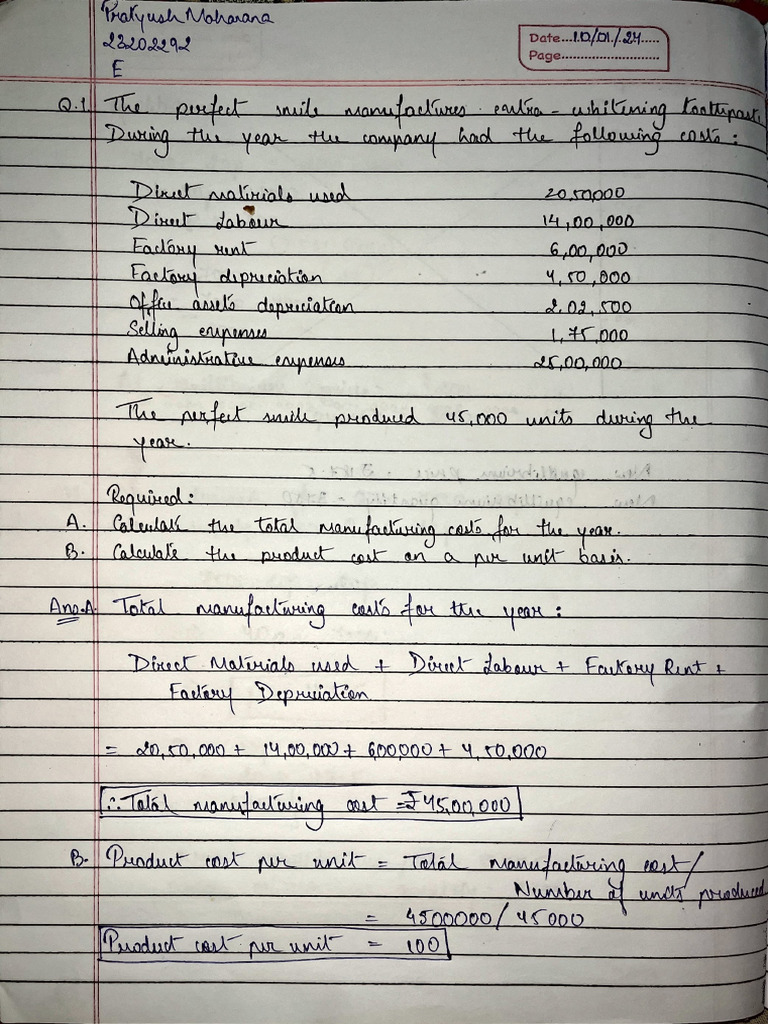 Pratyush Maharana
23202292
E
Date...10/01/24.....
Page............................
Q.1 The perfect smile manufactures extra-whitening toothpaste.
During the year the company had the following costs:
Direct materials used 20,50,000
Direct Labour 14,00,000
Factory rent 6,00,000
Factory depreciation 4,50,000
Office assets depreciation 2,02,500
Selling expenses 1,75,000
Administrative expenses 25,00,000
The perfect smile produced 45,000 units during the
year.
Required:
A. Calculate the total manufacturing costs for the year.
B. Calculate the product cost on a per unit basis.
Ans.A. Total manufacturing costs for the year:
Direct Materials used + Direct Labour + Factory Rent +
Factory Depreciation
= 20,50,000 + 14,00,000 + 6,00,000 + 4,50,000
∴ Total manufacturing cost = ₹ 45,00,000
B. Product cost per unit = Total manufacturing cost/
Number of units produced
= 4500000/45000
Product cost per unit = 100